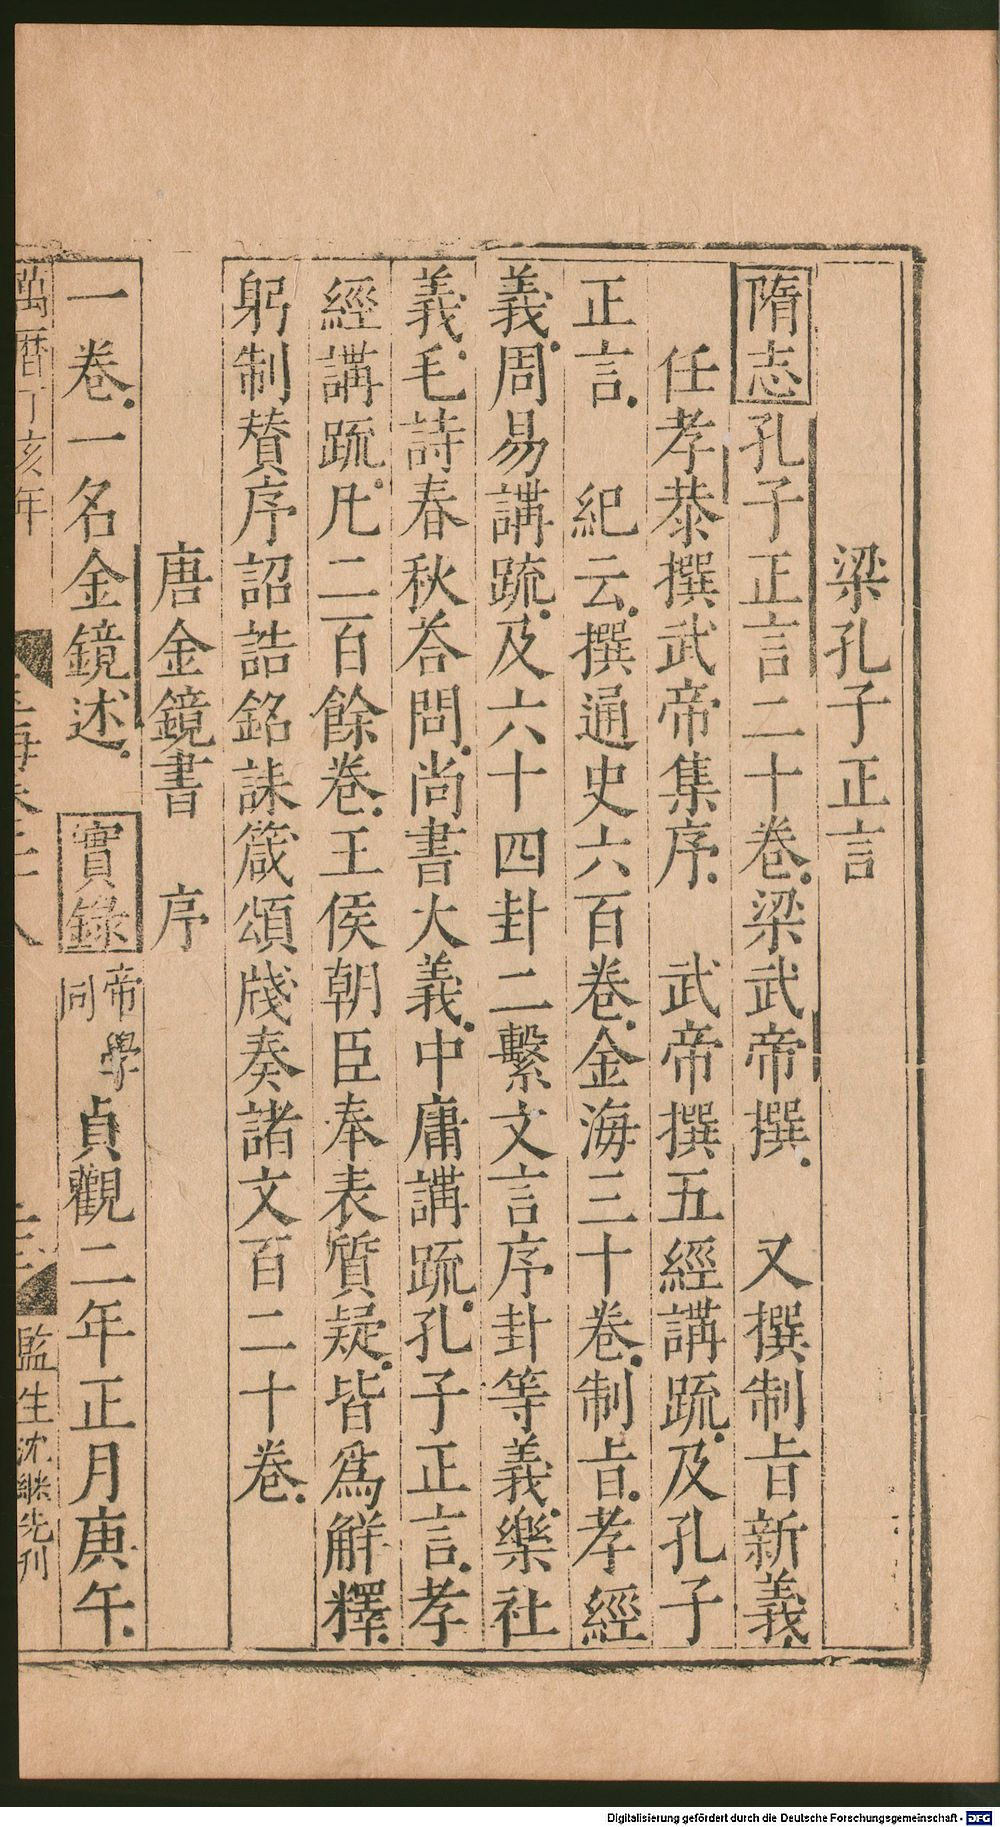 梁孔子正言
隋志孔子正言二十卷梁武帝撰 又撰制旨新義
任孝恭撰武帝集序 武帝撰五經講疏及孔子
正言 紀云撰通史六百卷金海三十卷制旨孝經
義周易講疏及六十四卦二繫文言序卦等義樂社
義毛詩春秋荅問尚書大義中庸講疏孔子正言孝
經講疏凡二百餘卷王侯朝臣奉表質疑皆爲解釋
躬制賛序詔誥銘誄箴頌牋奏諸文百二十卷
唐金鏡書 序
一卷一名金鏡述 實錄帝學同貞觀二年正月庚午
萬曆丁亥年 玉海卷二十八 監生沈継先刋
Digitalisierung gefördert durch die Deutsche Forschungsgemeinschaft - DFG